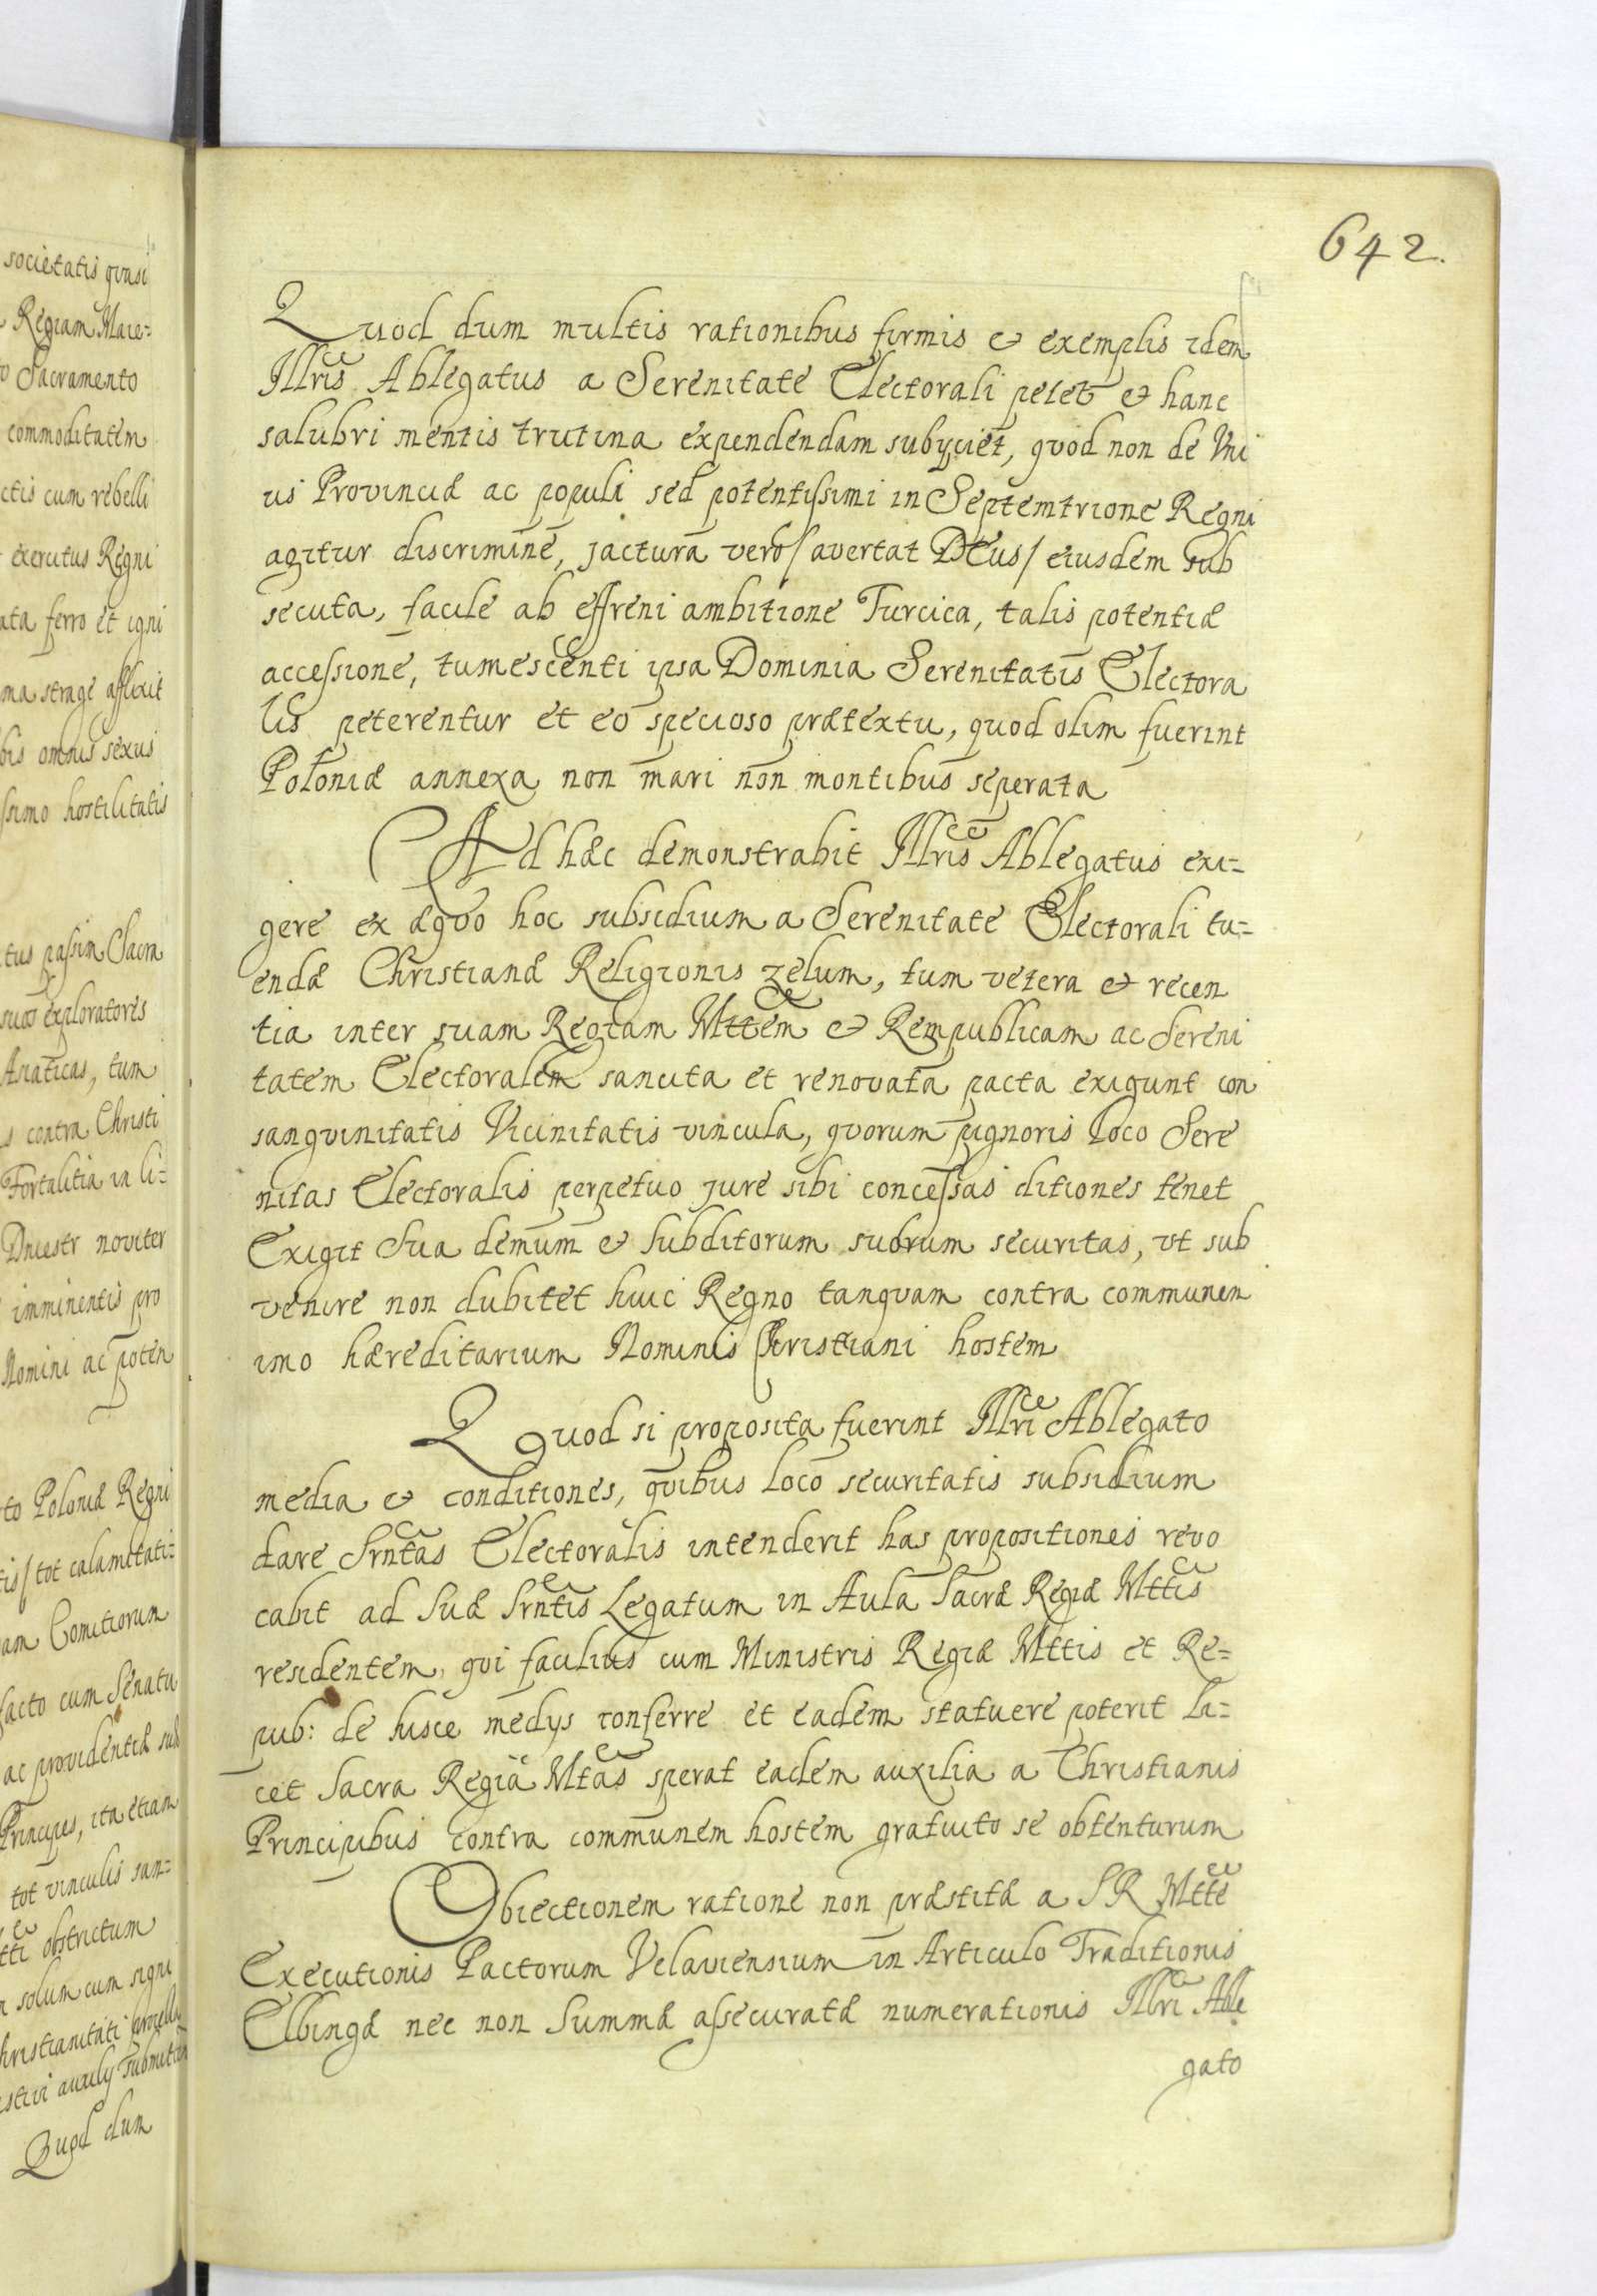 societatis quasi
Regiam Maie=
Sacramento
commoditatem
ctis cum rebelli
exerutus Regni
ata ferro et igni
ma strage afflixit
bis omnis sexus
ssimo hostilitatis
tus passim Sacra
suos exploratores
Asiaticas, tum
s contra Christi
Fortalitia in li=
Dniestr noviter
imminentis pro
Nomini ac poten
to Poloniæ Regni
tis/ tot calamitati=
am Comitiorum
facto cum Senatu
ac providentiæ suæ
Principes, ita etiam
tot vinculis san=
tti obstrictum
n solum cum signi
hristianitati
auxilij
Quod dum
642.
Quod dum multis rationibus firmis & exemplis idem
Illris Ablegatus a Serenitate Electorali petet & hanc
salubri mentis trutina expendendam subijciet, quod non de Vni
us Provinciæ ac populi sed potentissimi in Septemtrione Regni
agitur discrimine, jactura vero / avertat Deus / eiusdem sub
secuta, facile ab effreni ambitione Turcica, talis potentiæ
accessione, tumescenti ipsa Dominia Serenitatis Electora
lis peterentur et eo specioso prætextu, quod olim fuerint
Poloniæ annexa non mari non montibus seperata
Ad hæc demonstrabit Illris Ablegatus exi=
gere ex æquo hoc subsidium a Serenitate Electorali tu=
endæ Christianæ Religionis zelum, tum vetera & recen
tia inter suam Regiam Mttem & Rempublicam ac Sereni
tatem Electoralem sancita et renovata pacta exigunt con
sanguinitatis Vicinitatis vincula, quorum pignoris loco Sere
nitas Electoralis perpetuo jure sibi concessas ditiones tenet
Exigit Sua demum & Subditorum suorum securitas, vt sub
venire non dubitet huic Regno tanquam contra communem
imo hæreditarium Nominis Christiani hostem
Quod si proposita fuerint Illri Ablegato
media & conditiones, quibus loco securitatis subsidium
dare Srntas Electoralis intenderit has propositiones revo
cabit ad Suæ Srntis Legatum in Aula Sacræ Regiæ Mttis
residentem, qui facilius cum Ministris Regiæ Mttis et Re=
pub: de hisce medijs conferre et eadem statuere poterit li=
cet Sacra Regia Mtas sperat eadem auxilia a Christianis
Principibus contra communem hostem gratuito se obtenturum
Obiectionem ratione non præstitæ a S R Mtte
Executionis Pactorum Velaviensium in Articulo Traditionis
Elbingæ nec non Summæ assecuratæ numerationis Illri Able
gato